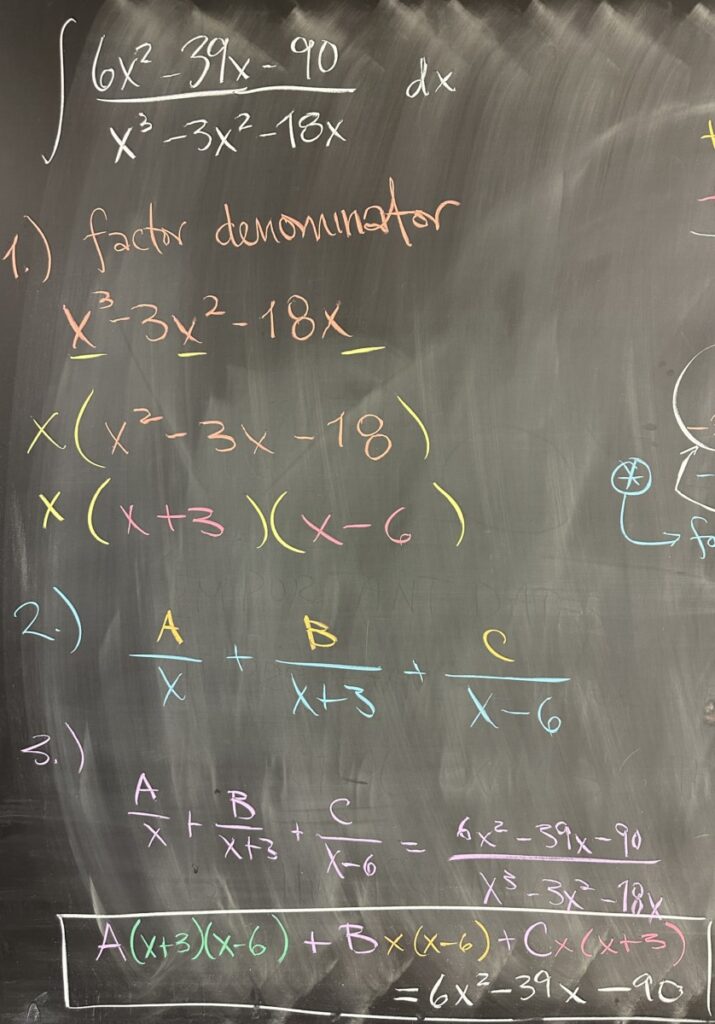 ∫ (6x² - 39x - 90)/(x³ - 3x² - 18x) dx
1.) factor denominator
x³ - 3x² - 18x
x(x² - 3x - 18)
x(x+3)(x-6)
2.) A/x + B/(x+3) + C/(x-6)
3.)
A/x + B/(x+3) + C/(x-6) = (6x² - 39x - 90)/(x³ - 3x² - 18x)
A(x+3)(x-6) + Bx(x-6) + Cx(x+3)
= 6x² - 39x - 90
*